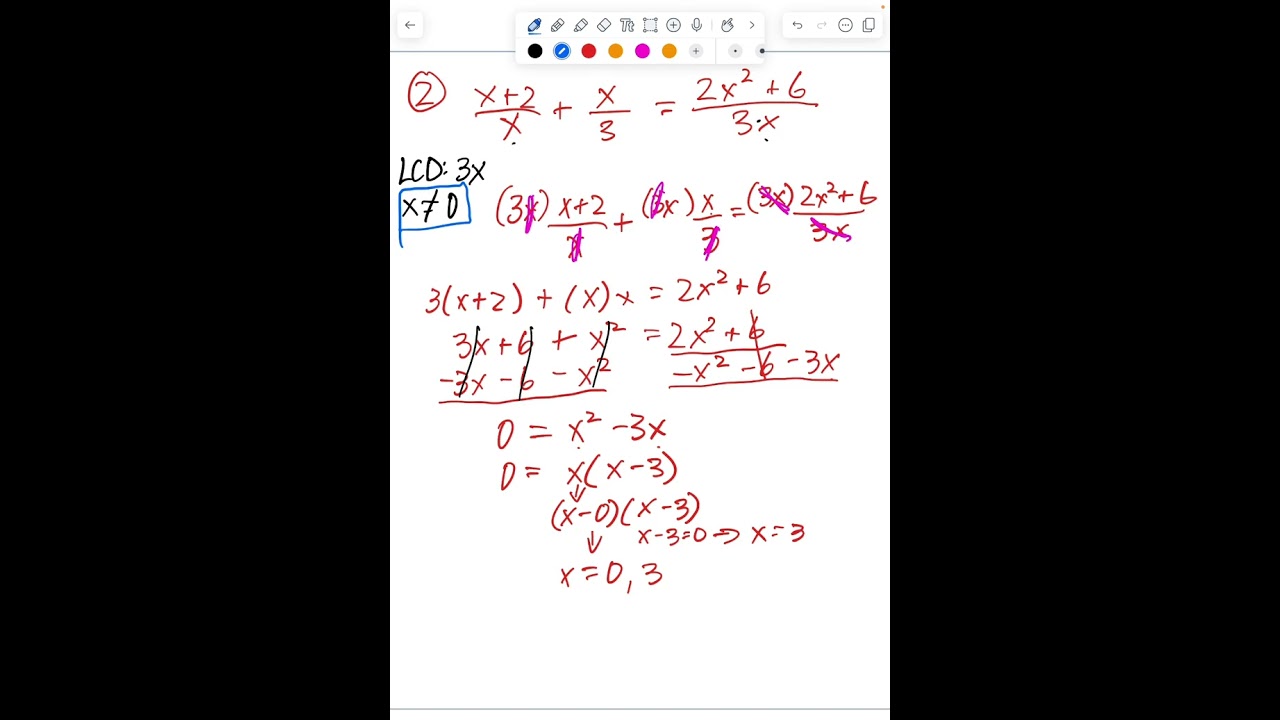 Tt
② (x+2)/x + x/3 = (2x² + 6)/(3·x)
LCD: 3x
x ≠ 0
(3x) (x+2)/x + (3x) x/3 = (3x) (2x²+6)/(3x)
3(x+2) + (x)x = 2x² + 6
3x + 6 + x² = 2x² + 6
-3x - 6 - x² -x² - 6 - 3x
0 = x² - 3x
0 = x(x-3)
(x-0)(x-3)
x-3=0 → x=3
x=0, 3